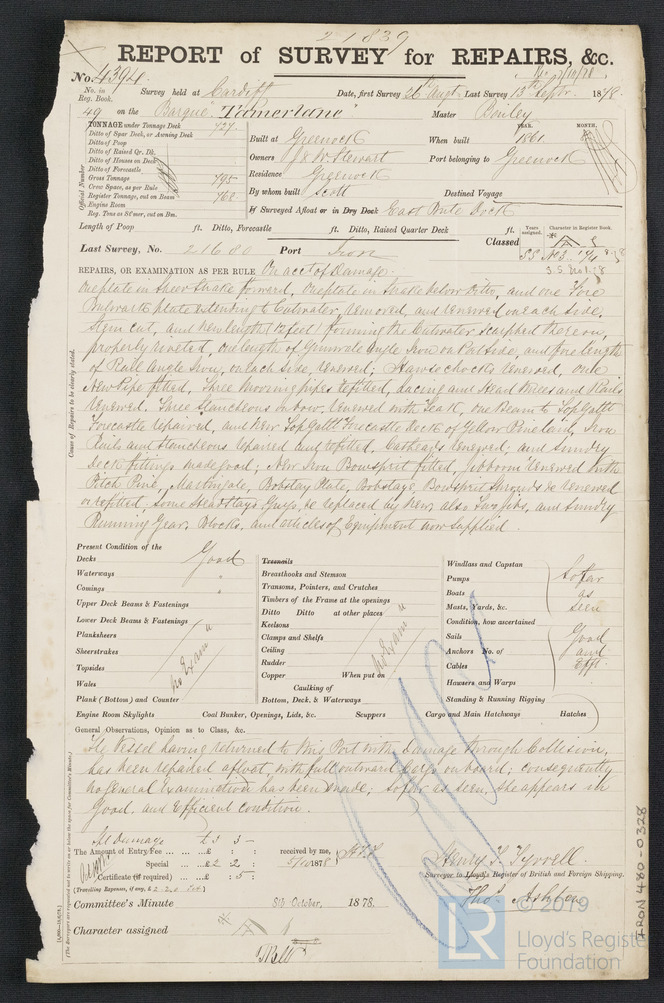 21839
REPORT of SURVEY for REPAIRS, &c.
No. 4394.
No. in Reg. Book. Survey held at Cardiff Date, first Survey 26th Augt. Last Survey 13th Septr. 1878.
49 on the Barque "Tamerlane" Master Bouley
TONNAGE under Tonnage Deck 727.
Ditto of Spar Deck, or Awning Deck
Ditto of Poop
Ditto of Raised Qr. Dk.
Ditto of Houses on Deck
Ditto of Forecastle
Gross Tonnage 795
Crew Space, as per Rule
Register Tonnage, cut on Beam 762
Engine Room
Reg. Tons as Stmer, cut on Bm.
Official Number
Built at Greenock When built YEAR. 1861 MONTH.
Owners J & W Stewart Port belonging to Greenock
Residence Greenock
By whom built Scott Destined Voyage
If Surveyed Afloat or in Dry Dock East Bute Dock
Length of Poop ft. Ditto, Forecastle ft. Ditto, Raised Quarter Deck ft.
Years assigned. Character in Register Book.
Last Survey. No. 21680 Port Iron Classed
SS No 3.
REPAIRS, OR EXAMINATION AS PER RULE On acct of Damage.
Cause of Repairs to be clearly stated.
One plate in Sheer Strake forward, one plate in Strake below Ditto, and one Fore
Bulwark plate extending to Cutwater, removed, and renewed on each side.
Stem cut, and new length (12 feet) forming the Cutwater scarphed thereon,
properly riveted, one length of Gunwale Angle Iron on Port side, and one length
of Rail Angle Iron, on each side, renewed; Hawse chocks renewed, one
New Pipe fitted, Three Mooring pipes refitted, Lacing and Head Knees and Rails
renewed. Three Stanchions on bow, renewed with Teak, one Beam to TopGallt
Forecastle repaired, and new TopGallt Forecastle deck of Yellow Pine laid, Iron
Rails and Stanchions repaired and refitted. Catheads renewed; and sundry
deck fittings made good; New Iron Bowsprit fitted, Jibboom renewed with
Pitch Pine, Martingale, Bobstay Plate, Bobstays, Bowsprit Shrouds &c renewed
or refitted, some Headstays, Guys, &c replaced by new, also Two Jibs, and sundry
Running Gear, Blocks, and articles of Equipment now supplied.
Present Condition of the
Decks Good
Waterways "
Comings "
Upper Deck Beams & Fastenings
Lower Deck Beams & Fastenings
Planksheers
Sheerstrakes
Topsides
Wales
Plank (Bottom) and Counter
no Exam n
Treenails
Breasthooks and Stemson
Transoms, Pointers, and Crutches
Timbers of the Frame at the openings
Ditto Ditto at other places
Keelsons
Clamps and Shelfs
Ceiling
Rudder
Copper When put on
Caulking of
Bottom, Deck, & Waterways
no Exam n
Windlass and Capstan
Pumps
Boats
Masts, Yards, &c.
So far as seen
Condition, how ascertained
Sails
Anchors No. of
Cables
Hawsers and Warps
Good and Efft.
Standing & Running Rigging
Engine Room Skylights Coal Bunker, Openings, Lids, &c. Scuppers Cargo and Main Hatchways Hatches
General Observations, Opinion as to Class, &c.
The Vessel having returned to this Port with damage through Collision,
has been repaired afloat, with full outward Cargo on board; consequently
no General Examination has been made; so far as seen, she appears in
Good, and Efficient condition.
The Amount of Entry Fee ... ... £ : : received by me,
Special ... ... £2 2 : 5/10 1878
Certificate (if required) ... £ : 5 :
(Travelling Expenses, if any, £
Henry T. Tyrrell.
Surveyor to Lloyd's Register of British and Foreign Shipping.
Thos. Ashton
Committee's Minute 8th October, 1878.
Character assigned
IRON 480-0328
LR © 2019
Lloyd's Register
Foundation